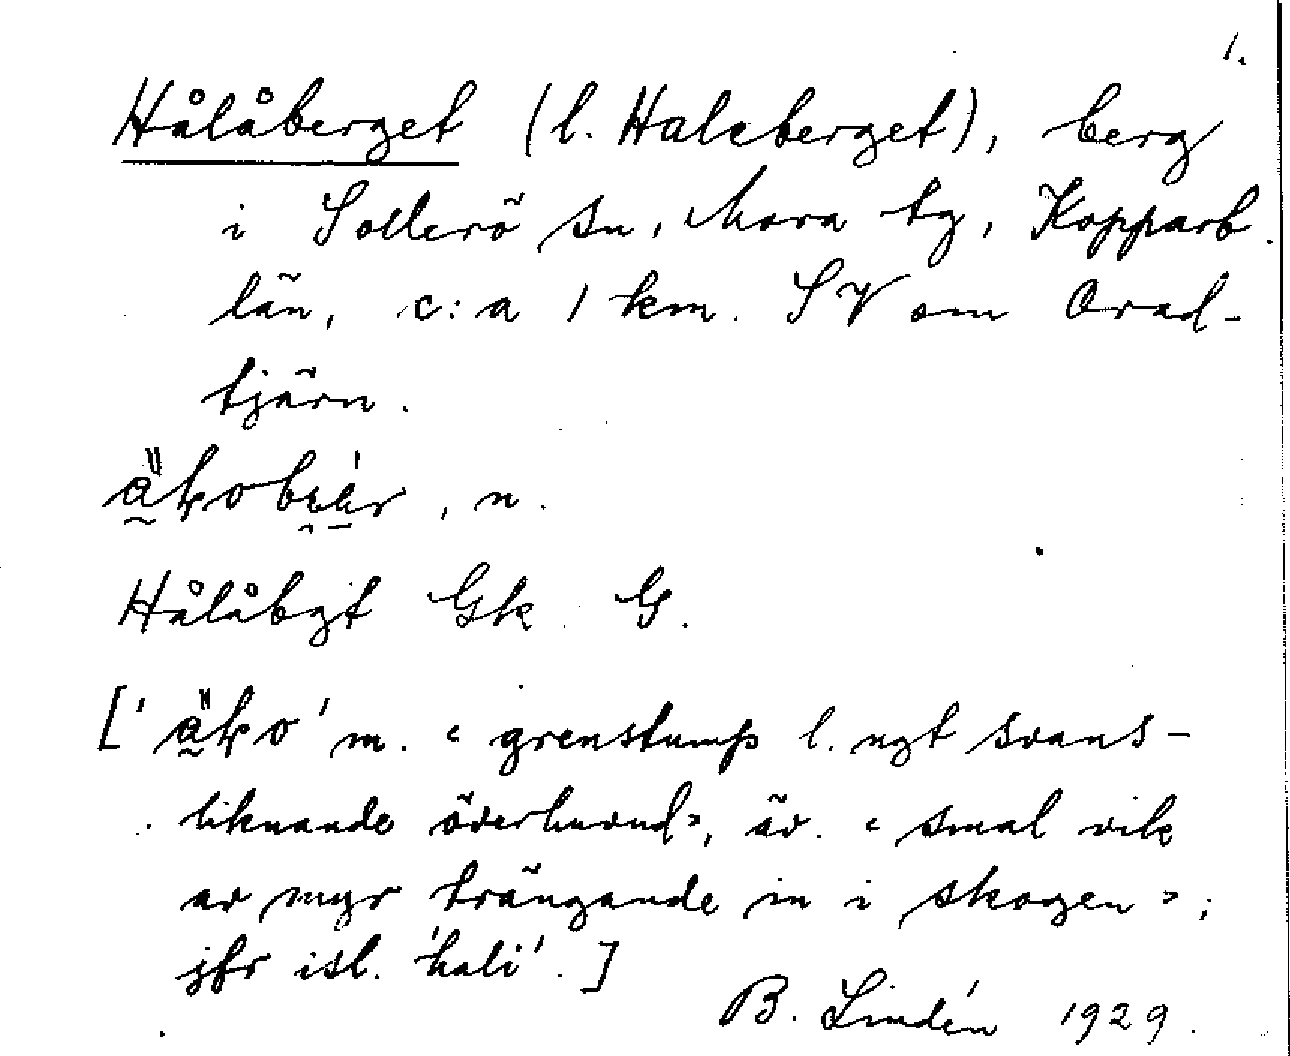 1.
Hålåberget (l. Haleberget), berg
i Sollerö sn, Mora tg, Kopparb.
län, c:a 1 km. SV om Orad-
tjärn.
, n.
Hålåbgt Gk. G.
[' ' m. "grenstump l. ngt svans-
liknande överhuvud", äv. "smal vik
av myr trängande in i skogen";
jfr isl. 'hali'.]
B. Lindén 1929.